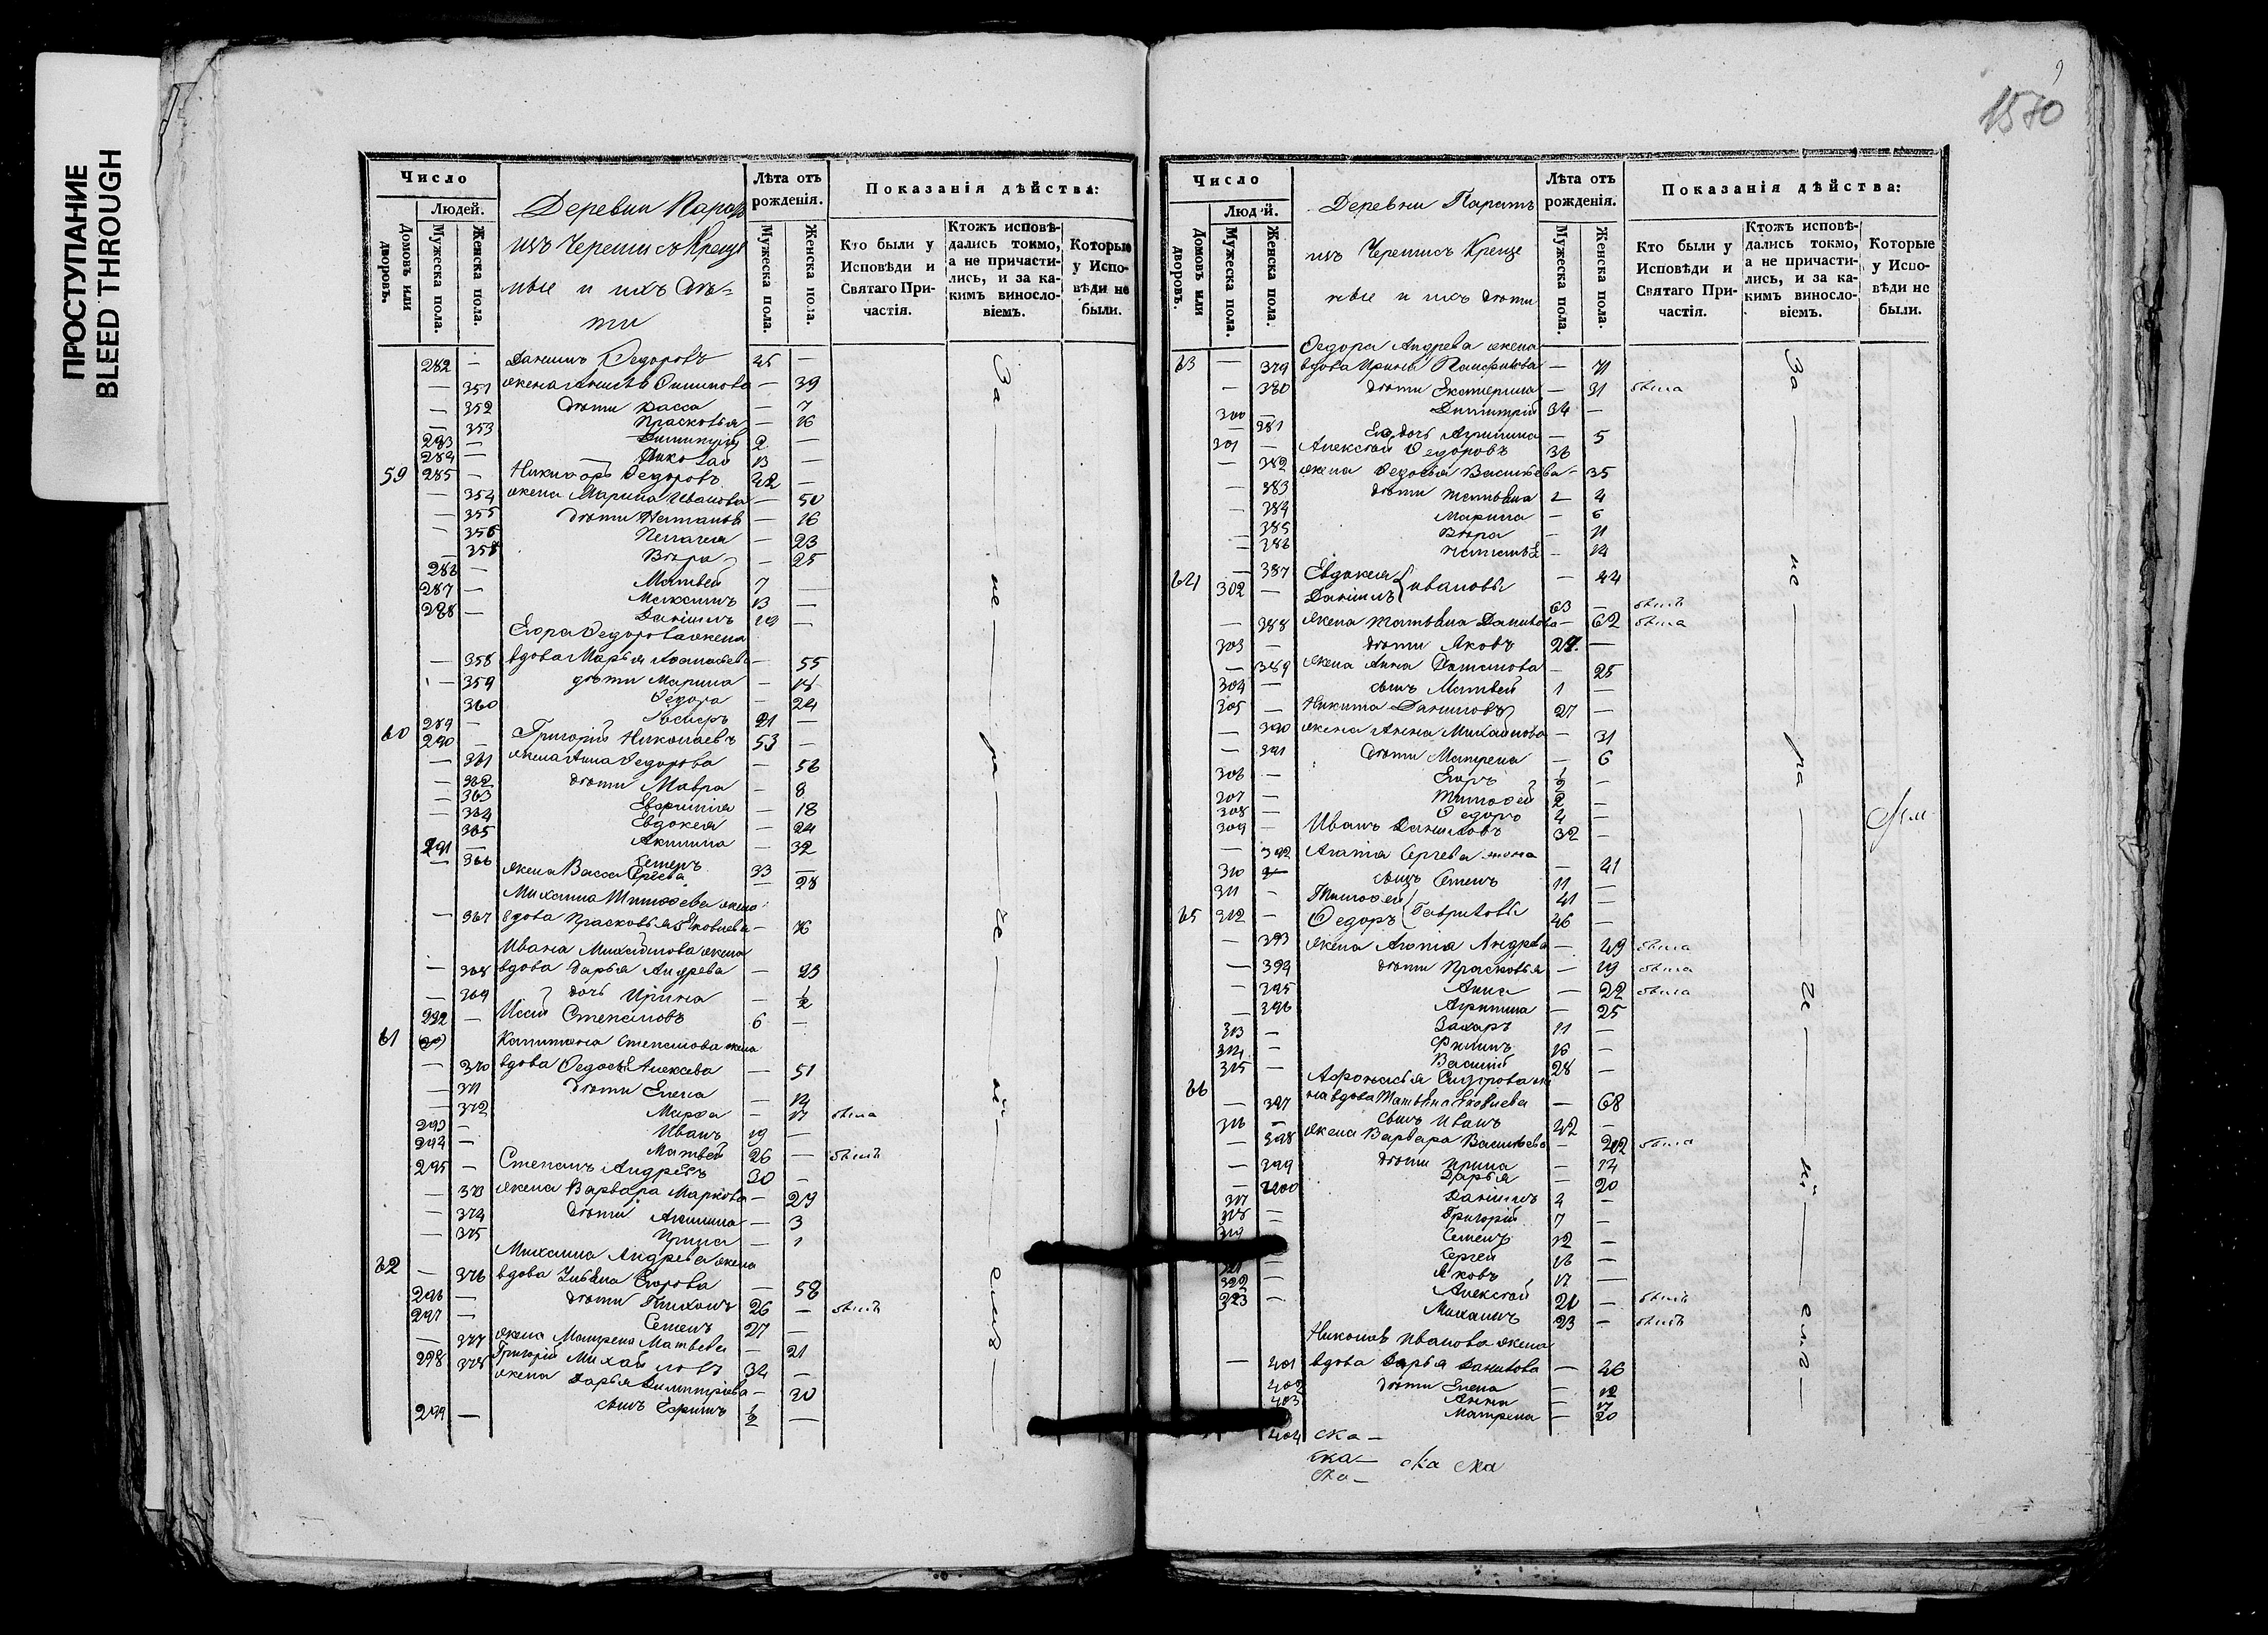 ПРОСТУПАНИЕ
BLEED THROUGH
Число
Людей.
Домовъ или дворовъ.
Мужеска пола.
Женска пола.
Деревни Парат
изъ Черемисъ Креще
ные и ихъ дѣ-
ти
Лѣта отъ рожденія.
Мужеска пола.
Женска пола.
Показанія дѣйства:
Кто были у Исповѣди и Святаго Причастія.
Ктожъ исповѣдались токмо, а не причастились, и за какимъ винословіемъ.
Которые у Исповѣди не были.
282 — Данилъ Ѳедоровъ 45 —
— 351 жена — 39
— 352 дѣти Васса — 7
— 353 Прасковья — 16
283 — Димитрій 2 —
284 — Николай 13 —
59 285 — Никифоръ Ѳедоровъ 42 —
— 354 жена Марина Иванова — 50
— 355 дѣти — 16
— 356 Пелагея — 23
— 357 Вѣра — 25
286 — Матвей 7 —
287 — Максимъ 13 —
288 — Данилъ 19 —
Егора Ѳедорова жена
— 358 вдова Марья — 55
— 359 дѣти Марина — 18
360 Ѳедора — 24
289 — 21 —
60 290 — Григорій Николаевъ 53 —
— 361 жена Анна Ѳедорова — 56
— 362 дѣти Мавра — 8
— 363 Евфимія — 18
— 364 Евдокея — 24
365 Акилина — 32
291 — Семенъ 33 —
— 366 жена Васса — 28
Михаила Тимоѳеева жена
— 367 вдова Прасковья Яковлева — 76
Ивана Михайлова жена
— 368 вдова Дарья Андрева — 23
— 369 дочь Ирина — 1/2
292 — Степановъ 6 —
61 Капитона Степанова жена
— 370 вдова Ѳедосья Алексѣева — 51
— 371 дѣти Елена — 14
— 372 Марѳа — 17 была
293 — Иванъ 19 —
294 — Матвей 26 — былъ
295 — Степанъ Андрѣевъ 30 —
— 373 жена Варвара Маркова — 29
— 374 дѣти Акилина — 3
— 375 Ирина — 1
Михаила Андрева жена
62 — 376 вдова Ульяна Егорова — 58
296 — дѣти Тихонъ 26 — былъ
297 — Семенъ 27 —
— 377 жена Матрена Матвева — 21
298 Григорій Михайловъ 34 —
378 жена Дарья Димитріева — 30
299 — сынъ Ефимъ 1/2 —
За не ра че ні емъ
1570
Число
Людей.
Домовъ или дворовъ.
Мужеска пола.
Женска пола.
Деревни Паратъ
изъ Черемисъ Креще
ные и ихъ дѣти
Лѣта отъ рожденія.
Мужеска пола.
Женска пола.
Показанія дѣйства:
Кто были у Исповѣди и Святаго Причастія.
Ктожъ исповѣдались токмо, а не причастились, и за какимъ винословіемъ.
Которые у Исповѣди не были.
Ѳедора Андрева жена
63 — 379 вдова Ирина — 71
— 380 дѣти Екатерина — 31 была
300 — Димитрій 34 —
— 381 Его дочь Агрипина — 5
301 — Алексѣй Ѳедоровъ 36
— 382 жена Ѳедосья Васильева — 35
— 383 дѣти Татьяна — 4
— 384 Марина — 6
— 385 Вѣра — 11
— 386 — 14
64 — 387 Евдокея Ивановы — 44
302 — Данилъ 63 — былъ
— 388 жена Татьяна Данилова — 62 была
303 — дѣти Яковъ 24 —
— 389 жена Анна — 25
304 — сынъ Матвей 1 —
305 — Никита Даниловъ 27 —
— 390 жена Анна Михайлова — 31
— 391 дѣти Матрена — 6
306 — Егоръ 1/2
307 — Тимоѳей 2 —
308 — Ѳедоръ 4 —
309 — Иванъ Даниловъ 32 —
— 392 Агапія Сергева жена — 41
310 — сынъ Семенъ 11 —
311 — Тимоѳей Гавриловы 41 —
65 312 — Ѳедоръ 46 —
— 393 жена Агапія Андрева — 49 была
— 394 дѣти Прасковья — 19 была
— 395 Анна — 22 была
— 396 Агрипина — 25
313 — Захаръ 11 —
314 — Филипъ 16 —
315 — Василій 28 —
66 Афонасья Сидорова же
— 397 на вдова Татьяна Яковлева — 68
316 — сынъ Иванъ 42 —
— 398 жена Варвара Васильева — 42 была
— 399 дѣти Ирина — 14
— 400 Дарья — 20
317 — Данилъ 4 —
318 — Григорій 7 —
319 Семенъ 12 —
Сергей 16 —
321 — Яковъ 17 —
322 — Алексѣй 21 — былъ
323 — Михаилъ 23 — былъ
Николая Иванова жена
— 401 вдова Дарья Данилова — 46
402 дѣти Елена — 12
403 Анна — 17
404 Матрена — 20
За не ра че ні емъ
ска —
ска — ска ска
ска —